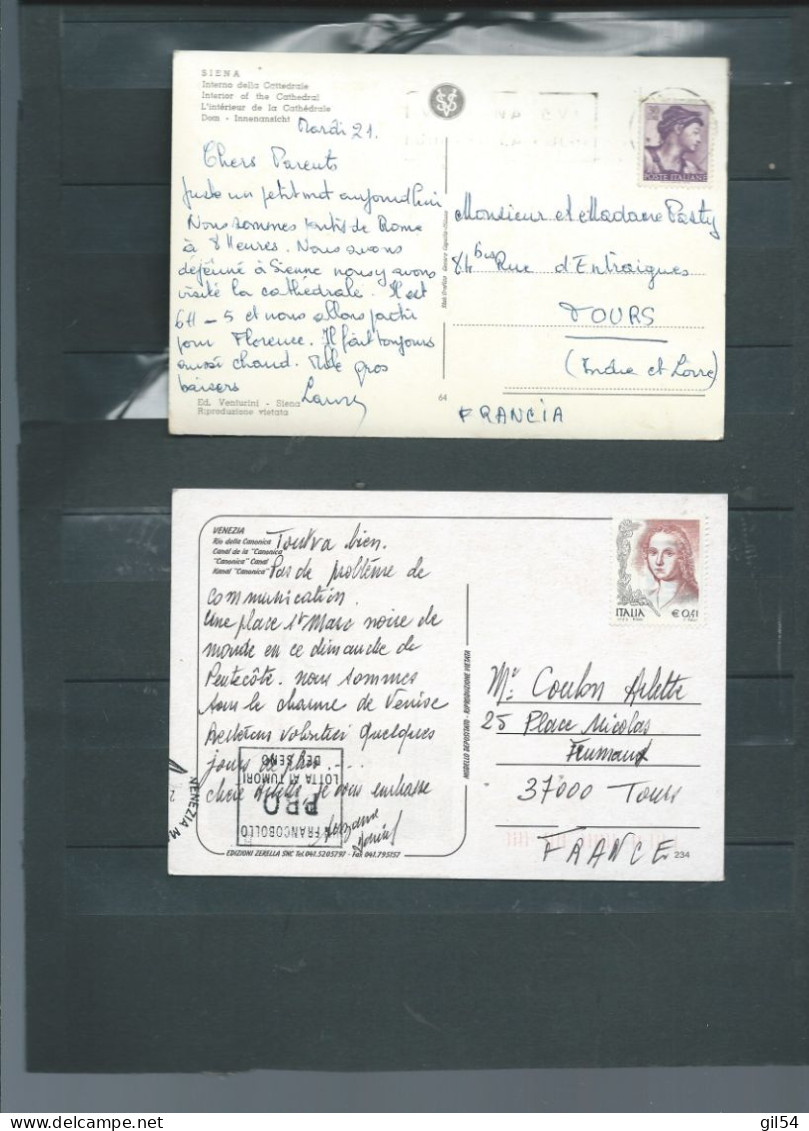 SIENA
Interno della Cattedrale
Interior of the Cathedral
L'intérieur de la Cathédrale
Dom - Innenansicht
Mardi 21.
Chers Parents
Juste un petit mot aujourd'hui
Nous sommes partis de Rome
à 8 Heures. Nous avons
déjeuné à Sienne nous y avons
visité la cathédrale. Il est
6H - 5 et nous allons partir
pour Florence. Il fait toujours
aussi chaud. Mille gros
baisers
Ed. Venturini - Siena
Riproduzione vietata
64
POSTE ITALIANE
Monsieur et Madame Pasty
84 bis Rue d'Entraigues
TOURS
(Indre et Loire)
FRANCIA
VENEZIA
Rio della Canonica
Canal de la "Canonica"
"Canonica" Canal
Kanal "Canonica"
Tout va bien.
Pas de problème de
communication.
Une place St Marc noire de
monde en ce dimanche de
Pentecôte. nous sommes
sous le charme de Venise
volontiers quelques
jours de plus ...
chère Arlette je vous embrasse
FRANCOBOLLO
PRO
LOTTA AI TUMORI
DEL SENO
VENEZIA M
EDIZIONI ZERELLA SNC Tel. 041.5205797 - Fax 041.795157
MODELLO DEPOSITATO - RIPRODUZIONE VIETATA
ITALIA
€ 0,41
Coulon Arlette
25 Place Nicolas
Frumaud
37000 Tours
FRANCE
234
delcampe.net
gil54